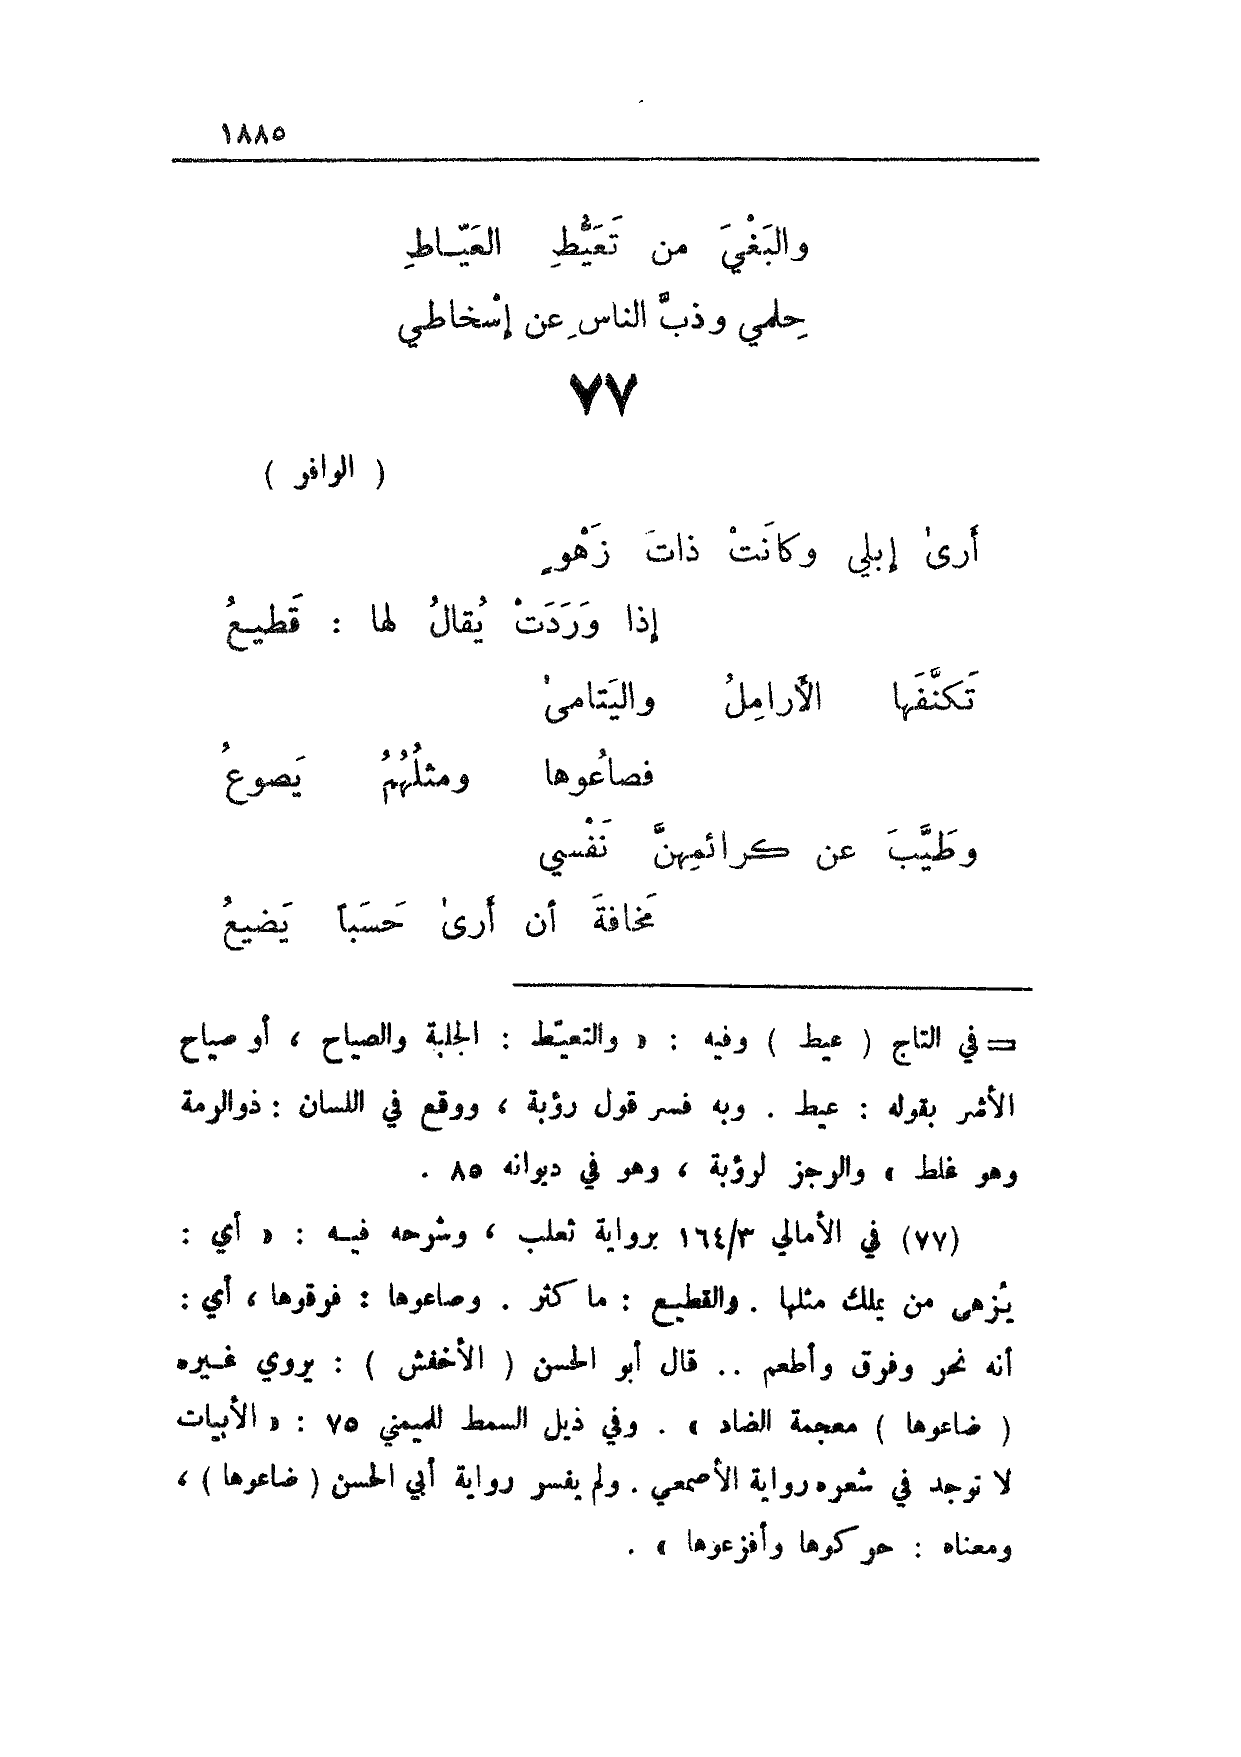 ١٨٨٥
والبَغْيَ من تَعَيُّطِ العَيّـاطِ
حِلمي وذبُّ الناسِ عن إسْخاطي
٧٧
( الوافر )
أَرىٰ إبلي وكانَتْ ذاتَ زَهْوٍ
إذا وَرَدَتْ يُقالُ لها : قَطيـعُ
تَكنَّفَها الأَرامِلُ واليَتامىٰ
فصاعُوها ومثلُهُمُ يَصوعُ
وطَيَّبَ عن كرائمِهنَّ نَفْسي
مَخافةَ أن أَرىٰ حَسَباً يَضيعُ
= في التاج ( عيط ) وفيه : « والتعيّط : الجلبة والصياح ، أو صياح
الأشر بقوله : عيط . وبه فسر قول رؤبة ، ووقع في اللسان : ذوالرمة
وهو غلط » والرجز لرؤبة ، وهو في ديوانه ٨٥ .
(٧٧) في الأمالي ١٦٤/٣ برواية ثعلب ، وشرحه فيـه : « أي :
يُزهى من يملك مثلها . والقطيـع : ما كثر . وصاعوها : فرقوها ، أي :
أنه نحر وفرق وأطعم .. قال أبو الحسن ( الأخفش ) : يروي غـيره
( ضاعوها ) معجمة الضاد » . وفي ذيل السمط للميمني ٧٥ : « الأبيات
لا توجد في شعره رواية الأصمعي . ولم يفسر رواية أبي الحسن ( ضاعوها ) ،
ومعناه : حركوها وأفزعوها » .